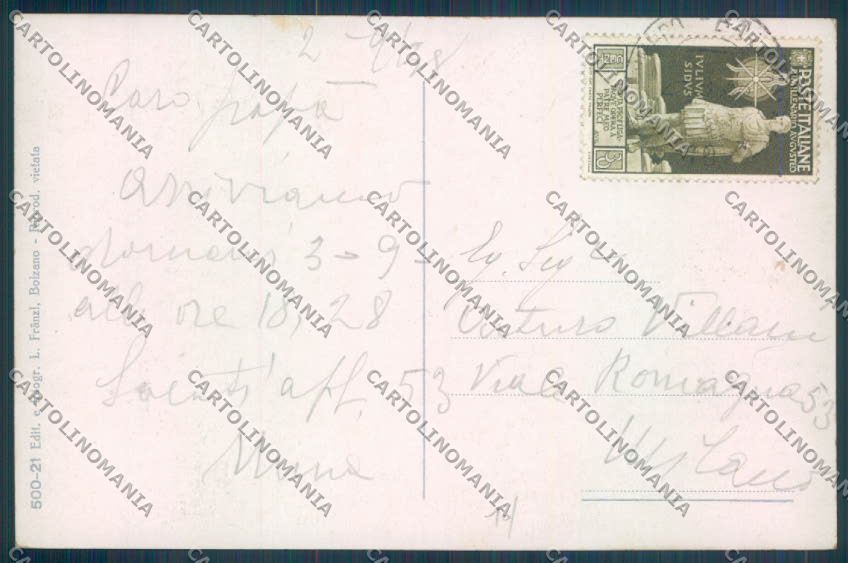 2 9/38
Caro papà
arriviamo
domani 3-9-
alle ore 18,28
Saluti aff.
Nuna
Eg. Sig
Arturo Villani
Viale Romagna 53
53
Milano
500-21 Edit. e fotogr. L. Fränzl, Bolzano - Riprod. vietata
POSTE ITALIANE
BIMILLENARIO AUGUSTEO
IVLIVM
SIDVS
CARTOLINOMANIA